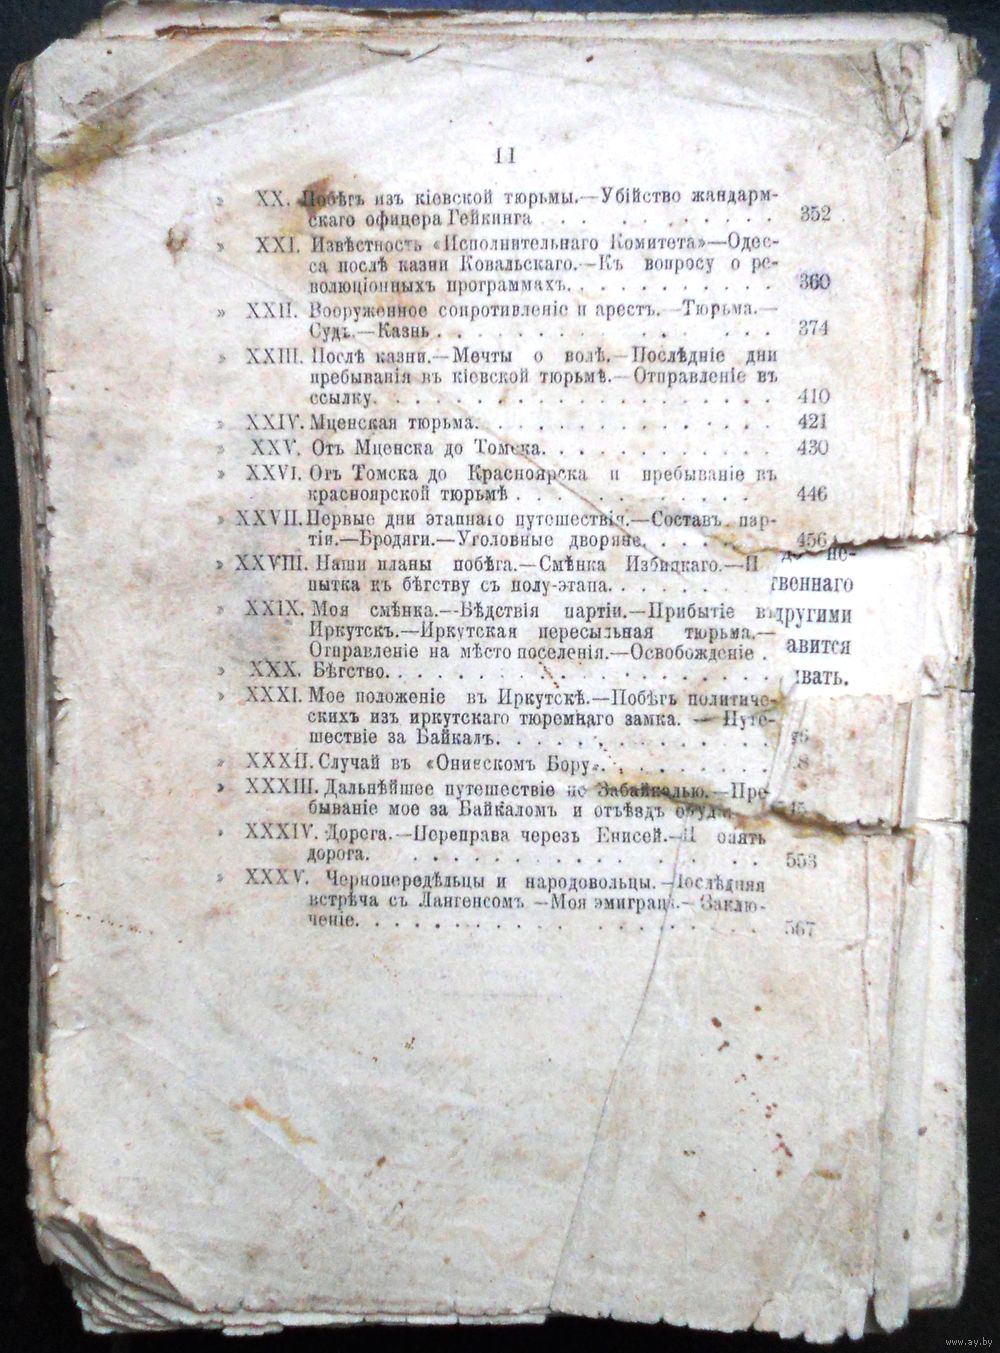 11
» XX. Побѣгъ изъ кіевской тюрьмы.—Убійство жандарм-
скаго офицера Гейкинга . . . . . . . . . . 352
» XXI. Извѣстность «Исполнительнаго Комитета»—Одес-
са послѣ казни Ковальскаго.—Къ вопросу о ре-
волюціонныхъ программахъ. . . . . . . . . . 360
» XXII. Вооруженное сопротивленіе и арестъ.—Тюрьма.—
Судъ.—Казнь . . . . . . . . . . . . 374
» XXIII. Послѣ казни.—Мечты о волѣ.—Послѣдніе дни
пребыванія въ кіевской тюрьмѣ.—Отправленіе въ
ссылку. . . . . . . . . . . . . . . . . . 410
» XXIV. Мценская тюрьма. . . . . . . . . . . . . 421
» XXV. Отъ Мценска до Томска. . . . . . . . . . 430
» XXVI. Отъ Томска до Красноярска и пребываніе въ
красноярской тюрьмѣ . . . . . . . . . . . 446
» XXVII. Первые дни этапнаго путешествія.—Составъ пар-
тіи.—Бродяги.—Уголовные дворяне. . . . . . 456
» XXVIII. Наши планы побѣга.—Смѣнка Избицкаго.—П
пытка къ бѣгству съ полу-этапа. . . . . . . твеннаго
» XXIX. Моя смѣнка.—Бѣдствія партіи.—Прибытіе въ другими
Иркутскъ.—Иркутская пересыльная тюрьма.—
Отправленіе на мѣсто поселенія.—Освобожденіе . авится
» XXX. Бѣгство. . . . . . . . . . . . . . . . . ивать.
» XXXI. Мое положеніе въ Иркутскѣ.—Побѣгъ политиче-
скихъ изъ иркутскаго тюремнаго замка. — Путе-
шествіе за Байкалъ. . . . . . . . . . . . .
» XXXII. Случай въ «Онинскомъ Бору». . . . . . . . 8
» XXXIII. Дальнѣйшее путешествіе по Забайкалью.—Пре-
бываніе мое за Байкаломъ и отъѣздъ 45
» XXXIV. Дорога.—Переправа черезъ Енисей.—И опять
дорога. . . . . . . . . . . . . . . . 553
» XXXV. Чернопередѣльцы и народовольцы.—Послѣдняя
встрѣча съ Лангенсомъ —Моя эмиграц.—Заклю-
ченіе. . . . . . . . . . . . . . . . . . 567
www.ay.by